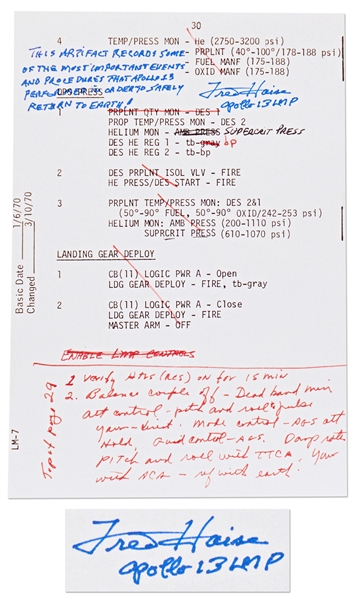 30
4 TEMP/PRESS MON - He (2750-3200 psi)
- PRPLNT (40°-100°/178-188 psi)
- FUEL MANF (175-188)
- OXID MANF (175-188)
THIS ARTIFACT RECORDS SOME
OF THE MOST IMPORTANT EVENTS
AND PROCEDURES THAT APOLLO 13
PERFORMED IN ORDER TO SAFELY
RETURN TO EARTH!
Fred Haise
Apollo 13 LMP
DPS PRESS
1 PRPLNT QTY MON - DES 1
PROP TEMP/PRESS MON - DES 2
HELIUM MON - AMB PRESS SUPERCRIT PRESS
DES HE REG 1 - tb-gray bp
DES HE REG 2 - tb-bp
2 DES PRPLNT ISOL VLV - FIRE
HE PRESS/DES START - FIRE
3 PRPLNT TEMP/PRESS MON: DES 2&1
(50°-90° FUEL, 50°-90° OXID/242-253 psi)
HELIUM MON: AMB PRESS (200-1110 psi)
SUPRCRIT PRESS (610-1070 psi)
LANDING GEAR DEPLOY
1 CB(11) LOGIC PWR A - Open
LDG GEAR DEPLOY - FIRE, tb-gray
2 CB(11) LOGIC PWR A - Close
LDG GEAR DEPLOY - FIRE
MASTER ARM - OFF
ENABLE LMP CONTROLS
1 Verify Htrs (RCS) on for 15 min
2. Balance couple off - Dead band min
att control - pitch and roll - pulse
yaw - direct. Mode control - AGS att
Hold. Guid control - AGS. Damp rates
Pitch and roll with TTCA, yaw
with ACA - w/ earth
Top of page 29
Basic Date 1/6/70
Changed 3/10/70
LM-7
Fred Haise
Apollo 13 LMP